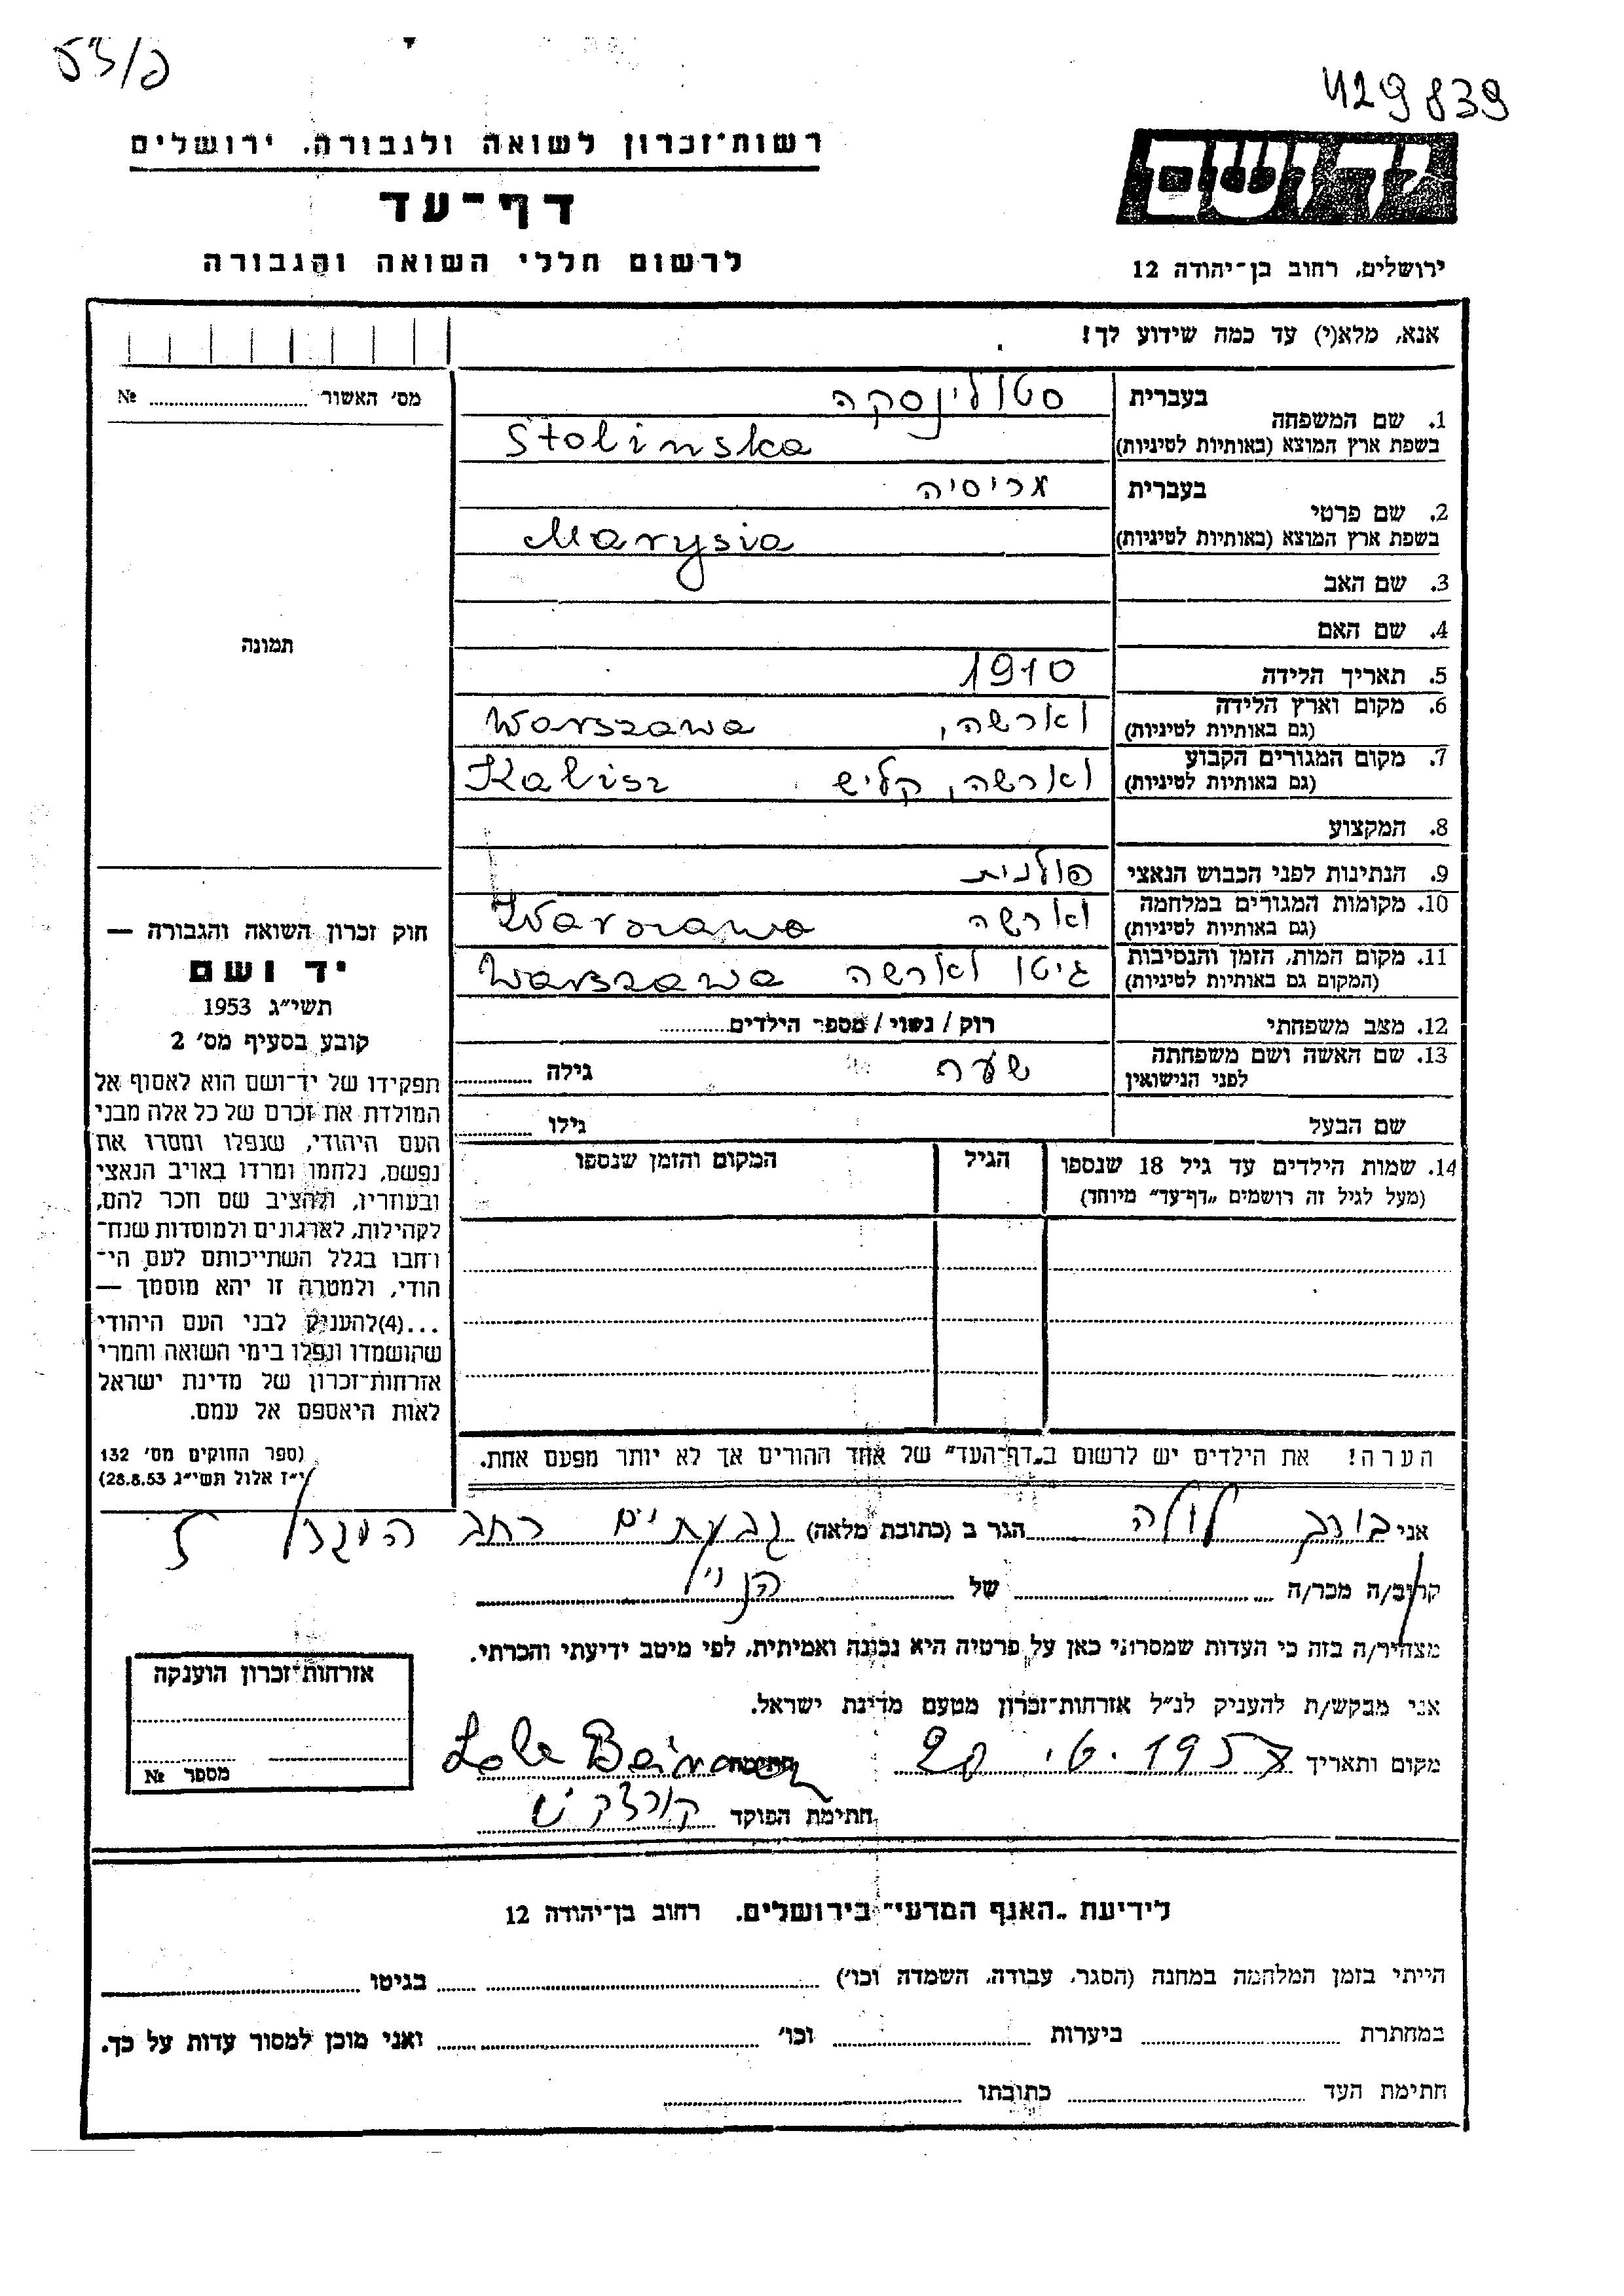 429839
רשות־זכרון לשואה ולגבורה. ירושלים
דף־עד
לרשום חללי השואה והגבורה
יד ושם
ירושלים, רחוב בן־יהודה 12
אנא, מלא(י) עד כמה שידוע לך!
מס׳ האשור № 
1. שם המשפחה
בעברית סטולינסקה
בשפת ארץ המוצא (באותיות לטיניות) Stolinska
2. שם פרטי
בעברית מריסיה
בשפת ארץ המוצא (באותיות לטיניות) Marysia
3. שם האב
4. שם האם
5. תאריך הלידה 1910
6. מקום וארץ הלידה וארשה, Warszawa
(גם באותיות לטיניות)
7. מקום המגורים הקבוע וארשה, קליש Kalisz
(גם באותיות לטיניות)
8. המקצוע
9. הנתינות לפני הכבוש הנאצי פולנית
10. מקומות המגורים במלחמה וארשה Warszawa
(גם באותיות לטיניות)
11. מקום המות, הזמן והנסיבות גיטו וארשה Warszawa
(המקום גם באותיות לטיניות)
12. מצב משפחתי רוק / נשוי / מספר הילדים
13. שם האשה ושם משפחתה גילה
לפני הנישואין
שם הבעל גילו
14. שמות הילדים עד גיל 18 שנספו הגיל המקום והזמן שנספו
(מעל לגיל זה רושמים „דף־עד״ מיוחד)
הערה! את הילדים יש לרשום ב„דף־העד״ של אחד ההורים אך לא יותר מפעם אחת.
תמונה
חוק זכרון השואה והגבורה —
יד ושם
תשי״ג 1953
קובע בסעיף מס׳ 2
תפקידו של יד־ושם הוא לאסוף אל
המולדת את זכרם של כל אלה מבני
העם היהודי, שנפלו ומסרו את
נפשם, נלחמו ומרדו באויב הנאצי
ובעוזריו, ולהציב שם וזכר להם,
לקהילות, לארגונים ולמוסדות שנח־
רחבו בגלל השתייכותם לעם הי־
הודי, ולמטרה זו יהא מוסמך —
...(4)להעניק לבני העם היהודי
שהושמדו ונפלו בימי השואה והמרי
אזרחות־זכרון של מדינת ישראל
לאות היאספם אל עמם.
(ספר החוקים מס׳ 132
י״ז אלול תשי״ג 28.8.53)
אני לולה הגר ב (כתובת מלאה) גבעתיים רחב
קרוב/ה מכר/ה של הנ״ל
מצהיר/ה בזה כי העדות שמסרתי כאן על פרטיה היא נכונה ואמיתית, לפי מיטב ידיעתי והכרתי.
אני מבקש/ת להעניק לנ״ל אזרחות־זכרון מטעם מדינת ישראל.
מקום ותאריך חתימה Lola
חתימת הפוקד
אזרחות־זכרון הוענקה
מספר №
לידיעת „האגף המדעי״ בירושלים. רחוב בן־יהודה 12
הייתי בזמן המלחמה במחנה (הסגר, עבודה, השמדה וכו׳) בגיטו
במחתרת ביערות וכו׳ ואני מוכן למסור עדות על כך.
חתימת העד כתובתו